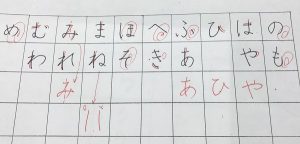 のはひふへほまみむめ
もや あきそねれわ
やひあ み